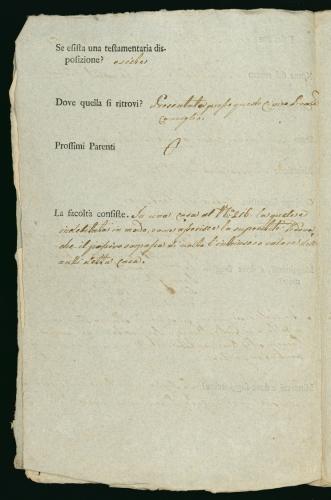 Se esista una testamentaria dis-
posizione? esiste
Dove quella si ritrovi? Presentata presso questo Civico Prov:
Consiglio.
Prossimi Parenti
La facoltà consiste. In una casa al N: 216. la quale è
indebitata in modo, come asserisce la superstite Vedova,
che il passivo sorpassa di molto l'intrinseco valore del-
della casa.